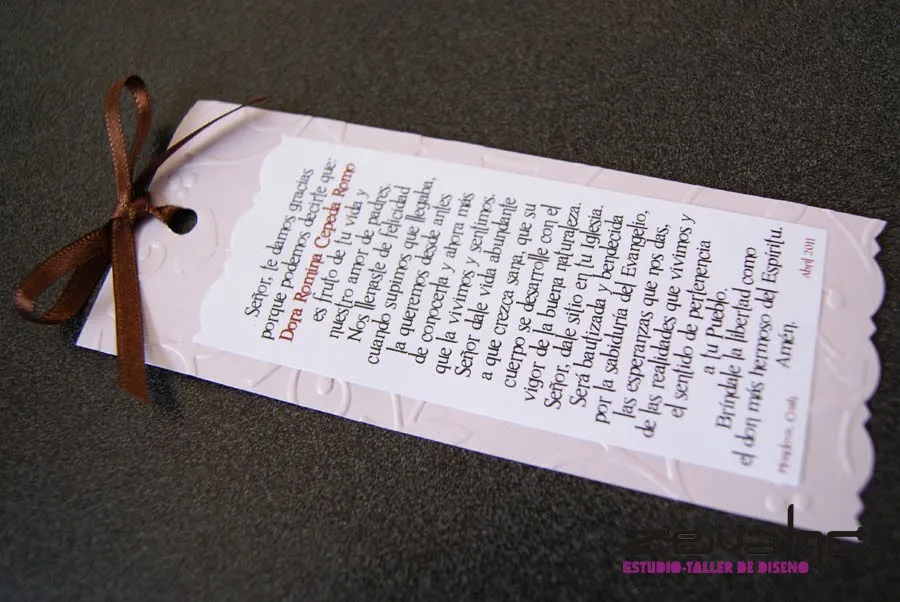 Señor, te damos gracias
porque podemos decirte que:
Dora Romina Cepeda Romo
es fruto de tu vida y
nuestro amor de padres.
Nos llenaste de felicidad
cuando supimos que llegaba,
la queremos desde antes
de conocerla y ahora más
que la vivimos y sentimos.
Señor dale vida abundante
a que crezca sana, que su
cuerpo se desarrolle con el
vigor de la buena naturaleza.
Señor, dale sitio en tu Iglesia.
Será bautizada y bendecida
por la sabiduría del Evangelio,
las esperanzas que nos das,
de las realidades que vivimos y
el sentido de pertenencia
a tu Pueblo.
Bríndale la libertad como
el don más hermoso del Espíritu.
Amén.
Monclova, Coah. Abril 2011
ESTUDIO-TALLER DE DISEÑO